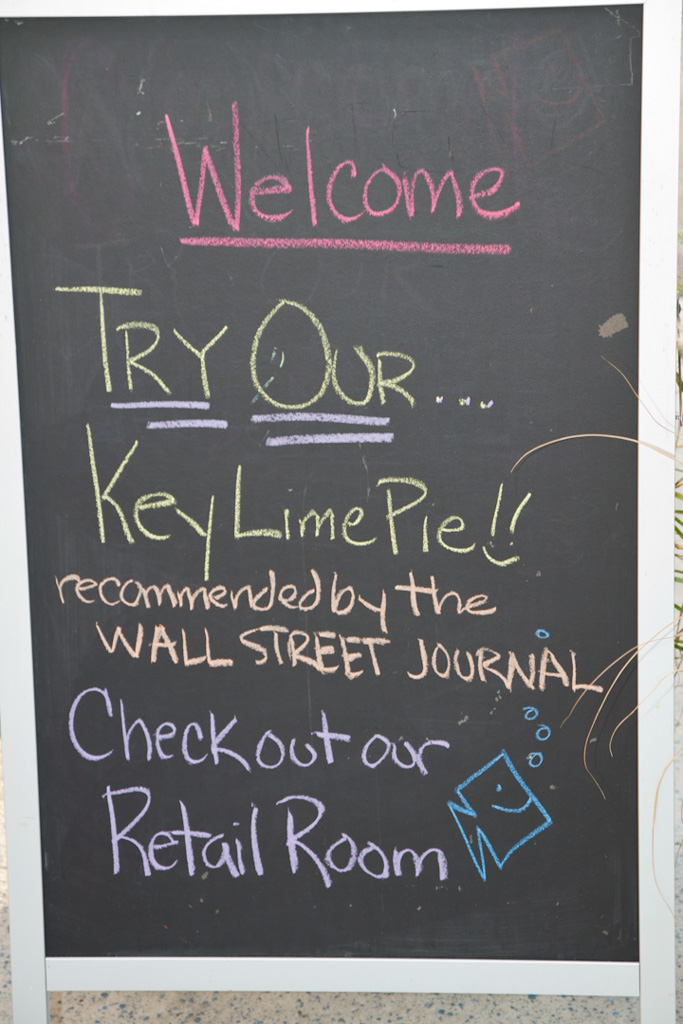 Welcome
TRY OUR ...
Key Lime Pie!!
recommended by the
WALL STREET JOURNAL
Check out our
Retail Room